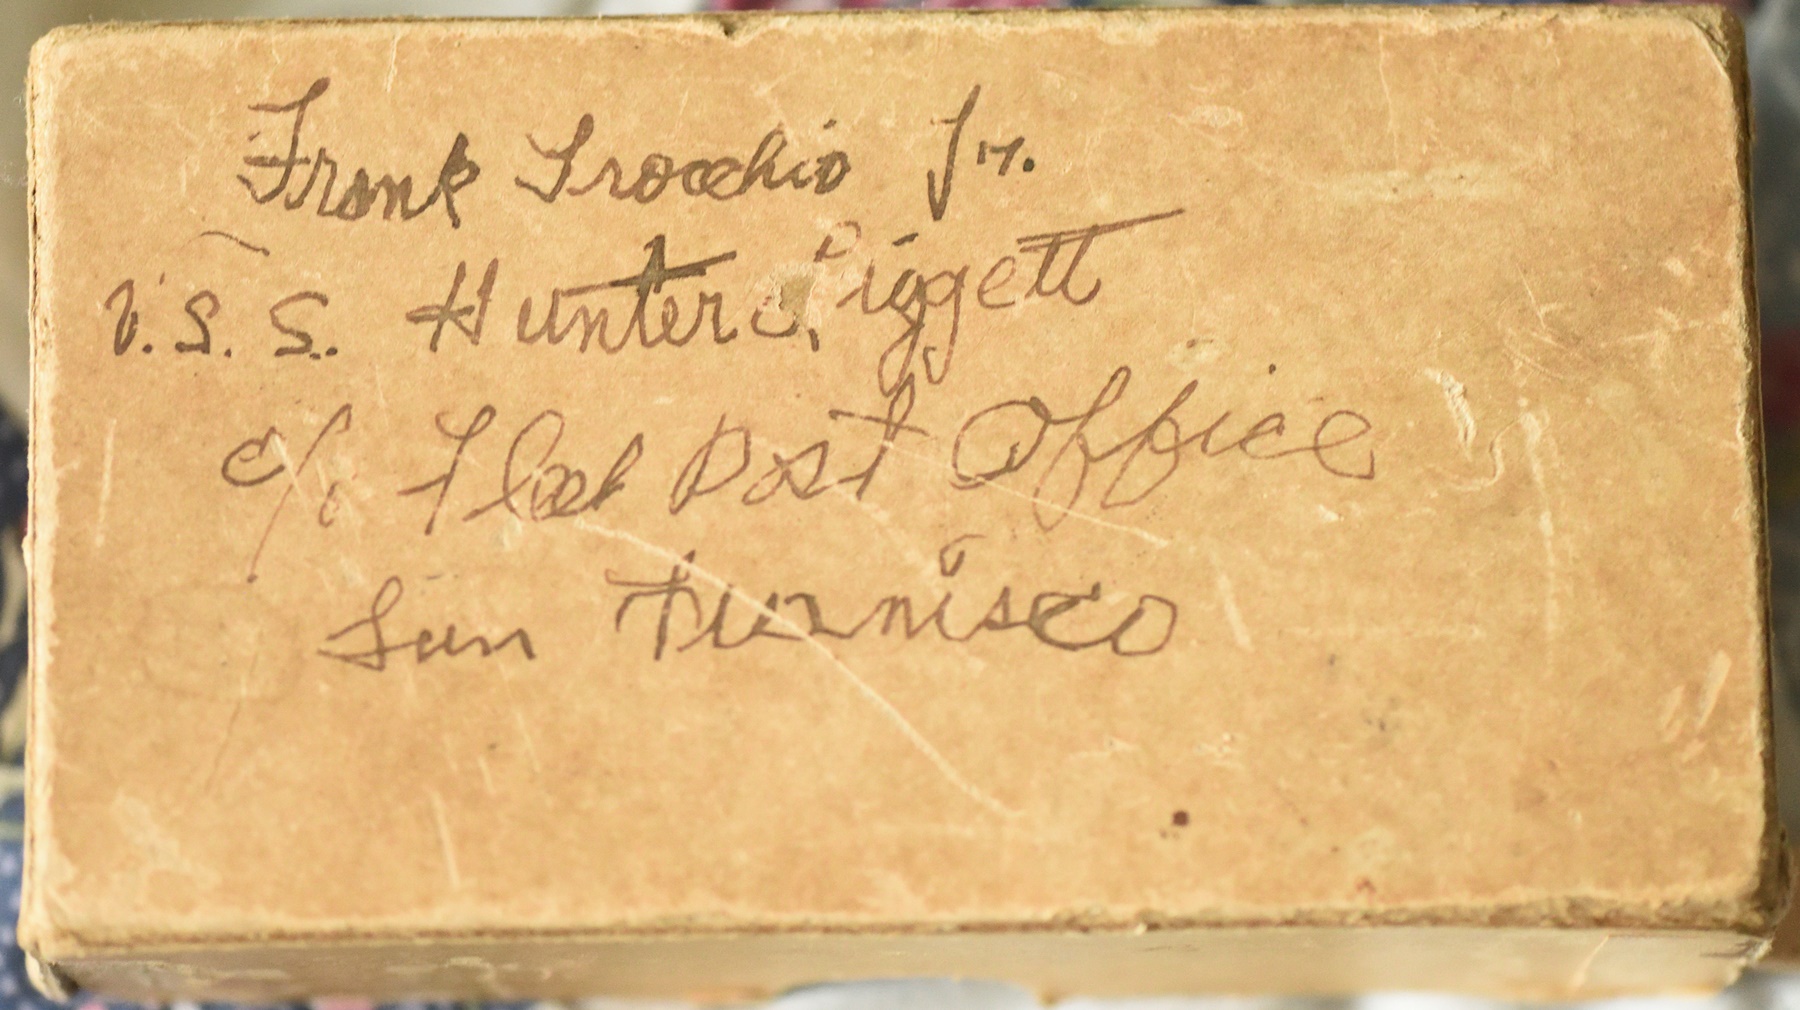 Frank Trocchio Jr.
U.S.S. Hunter Liggett
c/o Fleet Post Office
San Francisco